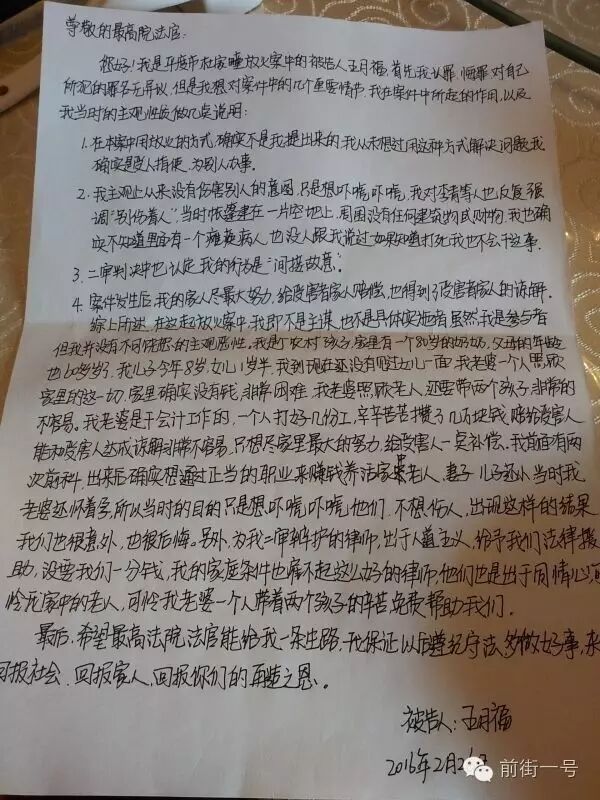 尊敬的最高院法官:
您好!我是平度市杜家疃放火案中的被告人王月福,首先我认罪、悔罪,对自己
所犯的罪名无异议,但是我想对案件中的几个重要情节,我在案件中所起的作用,以及
我当时的主观性质做几点说明:
1. 在本案中用放火的方式,确实不是我提出来的,我从未想过用这种方式解决问题,我
确实是受人指使,为别人办事。
2. 我主观上从来没有伤害别人的意图,只是想吓唬吓唬,我对李青等人也反复强
调"别伤着人",当时帐篷建在一片空地上,周围没有任何建筑物民财物,我也确
实不知道里面有一个瘫痪病人,也没人跟我说过,如果知道打死我也不会干这事.
3. 二审判决中也认定,我的行为是"间接故意"。
4. 案件发生后,我的家人尽最大努力,给受害者家人赔偿,也得到了受害者家人的谅解.
综上所述,在这起放火案中,我即不是主谋,也不是具体实施者,虽然我是参与者
但我并没有不可饶恕的主观恶性,我是个农村孩子,家里有一个80岁的奶奶,父母的年龄
也60多岁了.我儿子今年8岁,女儿1岁半.我到现在还没有见过女儿一面.我老婆一个人照顾
家里的这一切.家里确实没有钱,非常困难.我老婆照顾老人,还要带两个孩子,非常的
不容易。我老婆是干会计工作的,一个人打好几份工,辛辛苦苦攒了几万块钱,赔给受害人
能和受害人达成谅解非常不容易.只想尽家里最大的努力,给受害人一点补偿.我前面有两
次前科,出来后确实想通过正当的职业来赚钱养活家里老人、妻子、儿子还小,当时我
老婆还怀着孕,所以当时的目的只是想吓唬吓唬他们,不想伤人,出现这样的结果
我们也很意外,也很后悔。另外,为我二审辩护的律师,出于人道主义,给予我们法律援
助,没要我们一分钱,我的家庭条件也雇不起这么好的律师,他们也是出于同情心,可
怜我家中的老人,可怜我老婆一个人带着两个孩子的辛苦免费帮助我们。
最后,希望最高法院法官能给我一条生路,我保证以后遵纪守法,多做好事,来
回报社会、回报家人,回报你们的再造之恩。
被告人:王月福
2016年2月2
前街一号